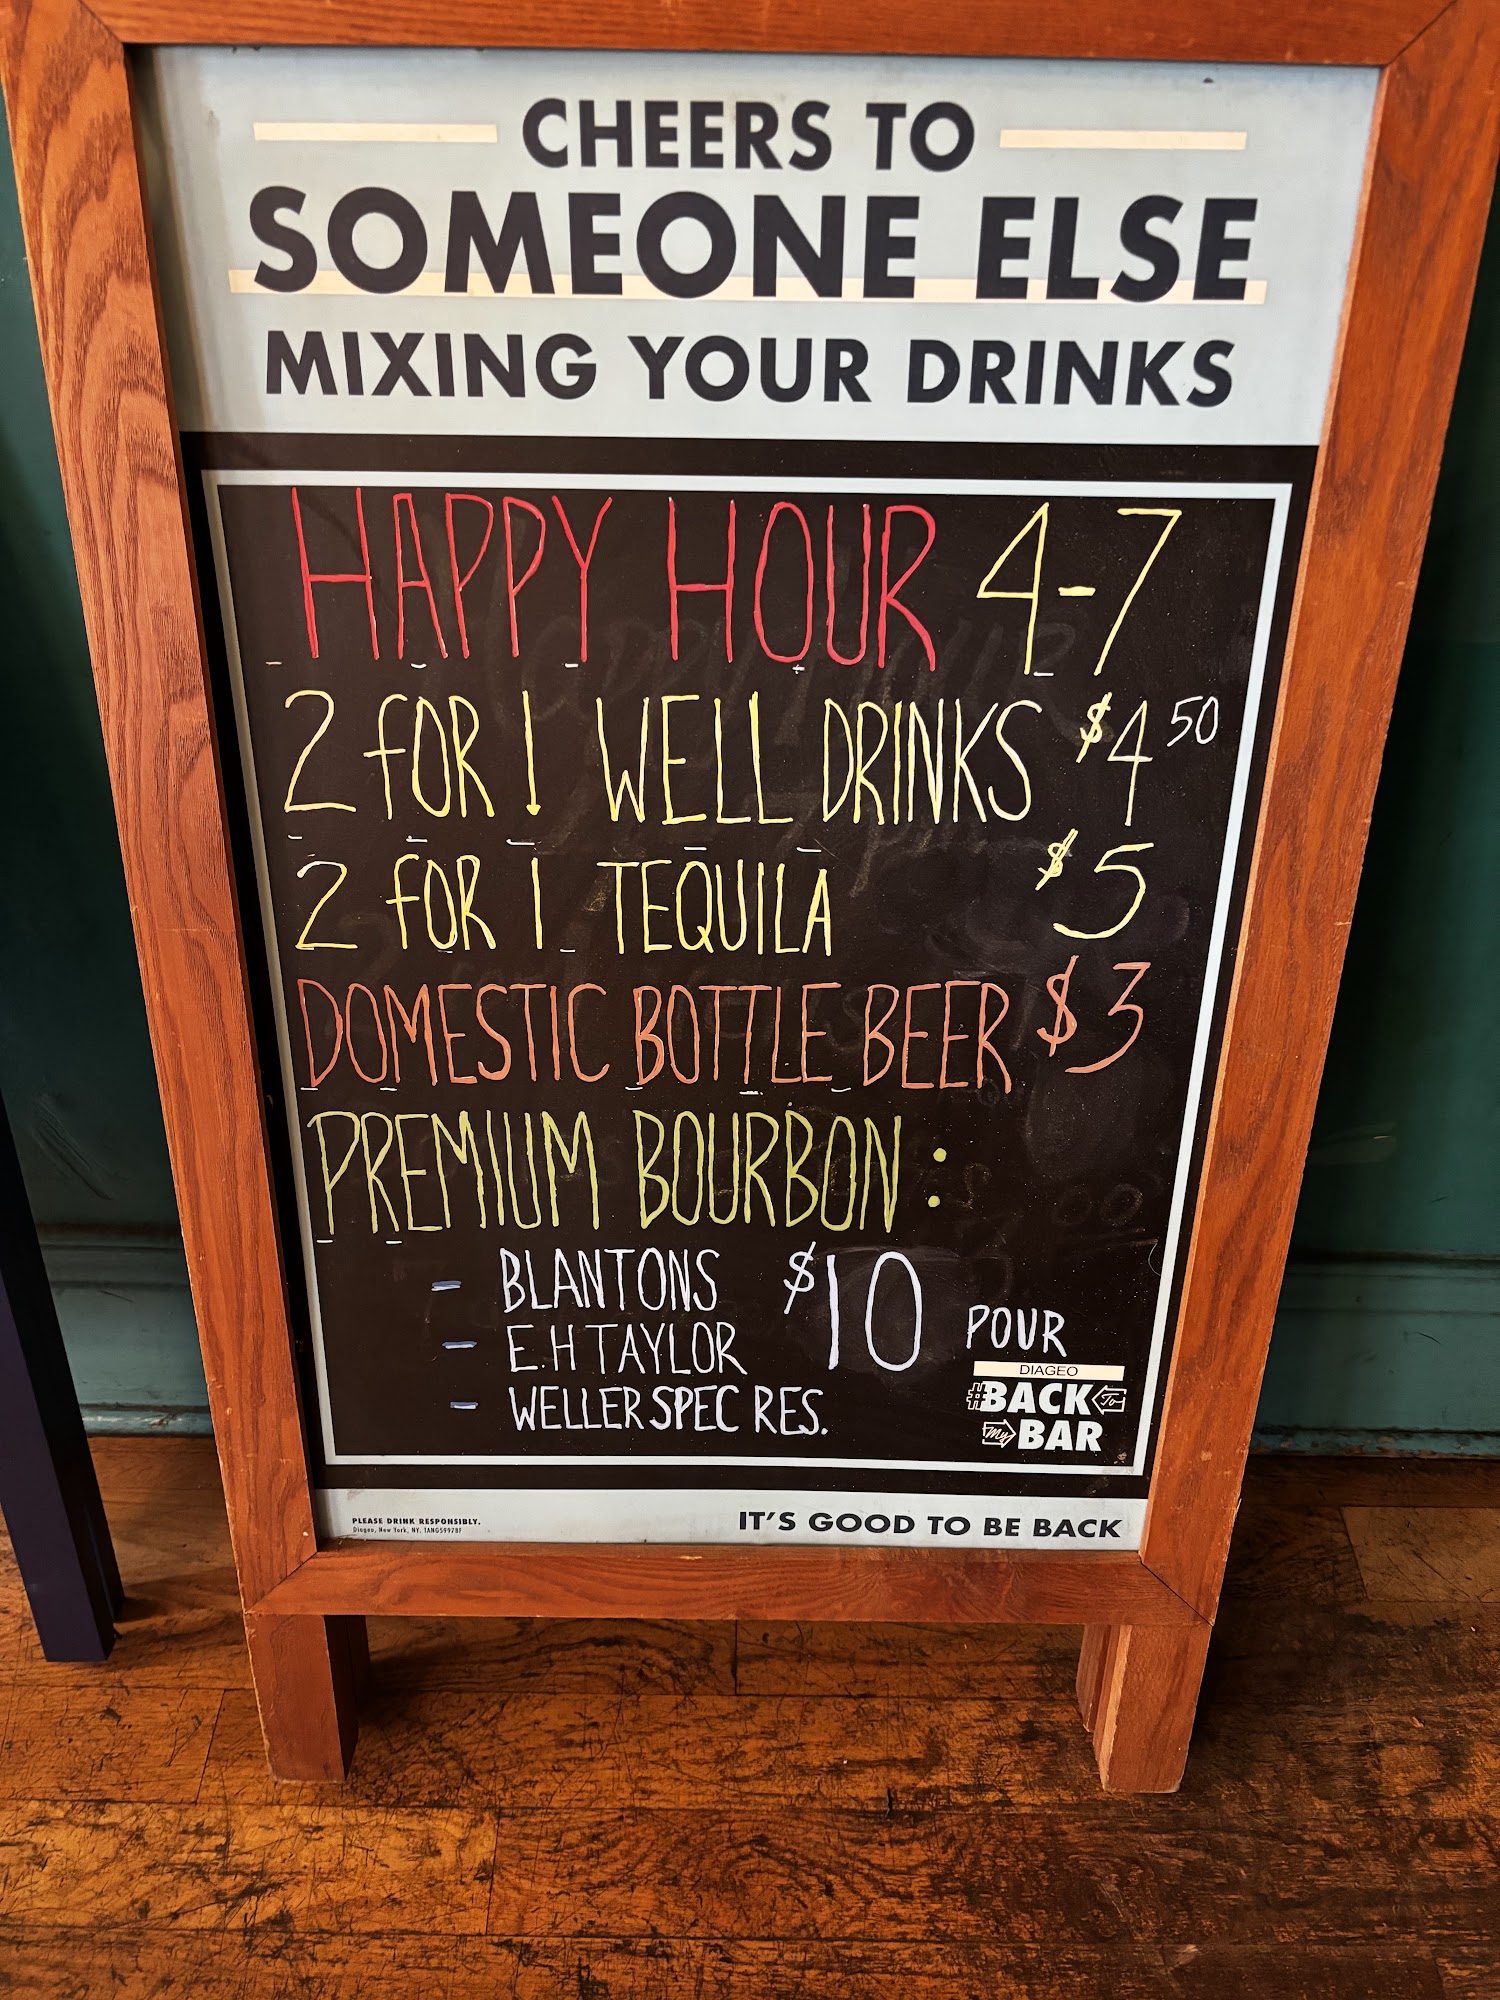 CHEERS TO
SOMEONE ELSE
MIXING YOUR DRINKS
HAPPY HOUR 4-7
2 FOR 1 WELL DRINKS $4 50
2 FOR 1 TEQUILA $5
DOMESTIC BOTTLE BEER $3
PREMIUM BOURBON:
- BLANTONS $10 POUR
- E.H TAYLOR
- WELLER SPEC RES.
DIAGEO
#BACK To
My BAR
PLEASE DRINK RESPONSIBLY.
Diageo, New York, NY.
IT'S GOOD TO BE BACK